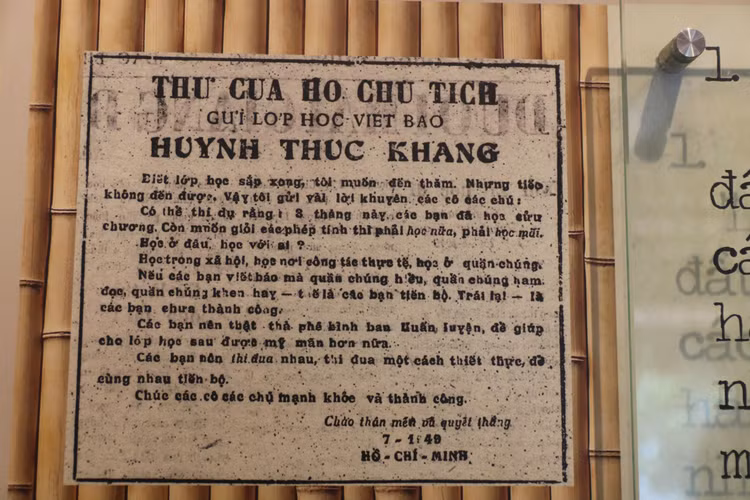 THƯ CUA HO CHU TICH
GƯI LƠP HOC VIET BAO
HUYNH THUC KHANG
Biết lớp học sắp xong, tôi muốn đến thăm. Nhưng tiếc
không đến được. Vậy tôi gửi vài lời khuyên các cô các chú:
Có thể thí dụ rằng: 3 tháng này, các bạn đã học cửu
chương. Còn muốn giỏi các phép tính thì phải học nữa, phải học mãi.
Học ở đâu, học với ai?
Học trong xã hội, học nơi công tác thực tế, học ở quần chúng.
Nếu các bạn viết báo mà quần chúng hiểu, quần chúng ham
đọc, quần chúng khen hay — thế là các bạn tiến bộ. Trái lại — là
các bạn chưa thành công.
Các bạn nên thật thà phê bình ban Huấn luyện, để giúp
cho lớp học sau được mỹ mãn hơn nữa.
Các bạn nên thi đua nhau, thi đua một cách thiết thực, để
cùng nhau tiến bộ.
Chúc các cô các chú mạnh khỏe và thành công.
Chào thân mến và quyết thắng
HỒ - CHÍ - MINH
1.